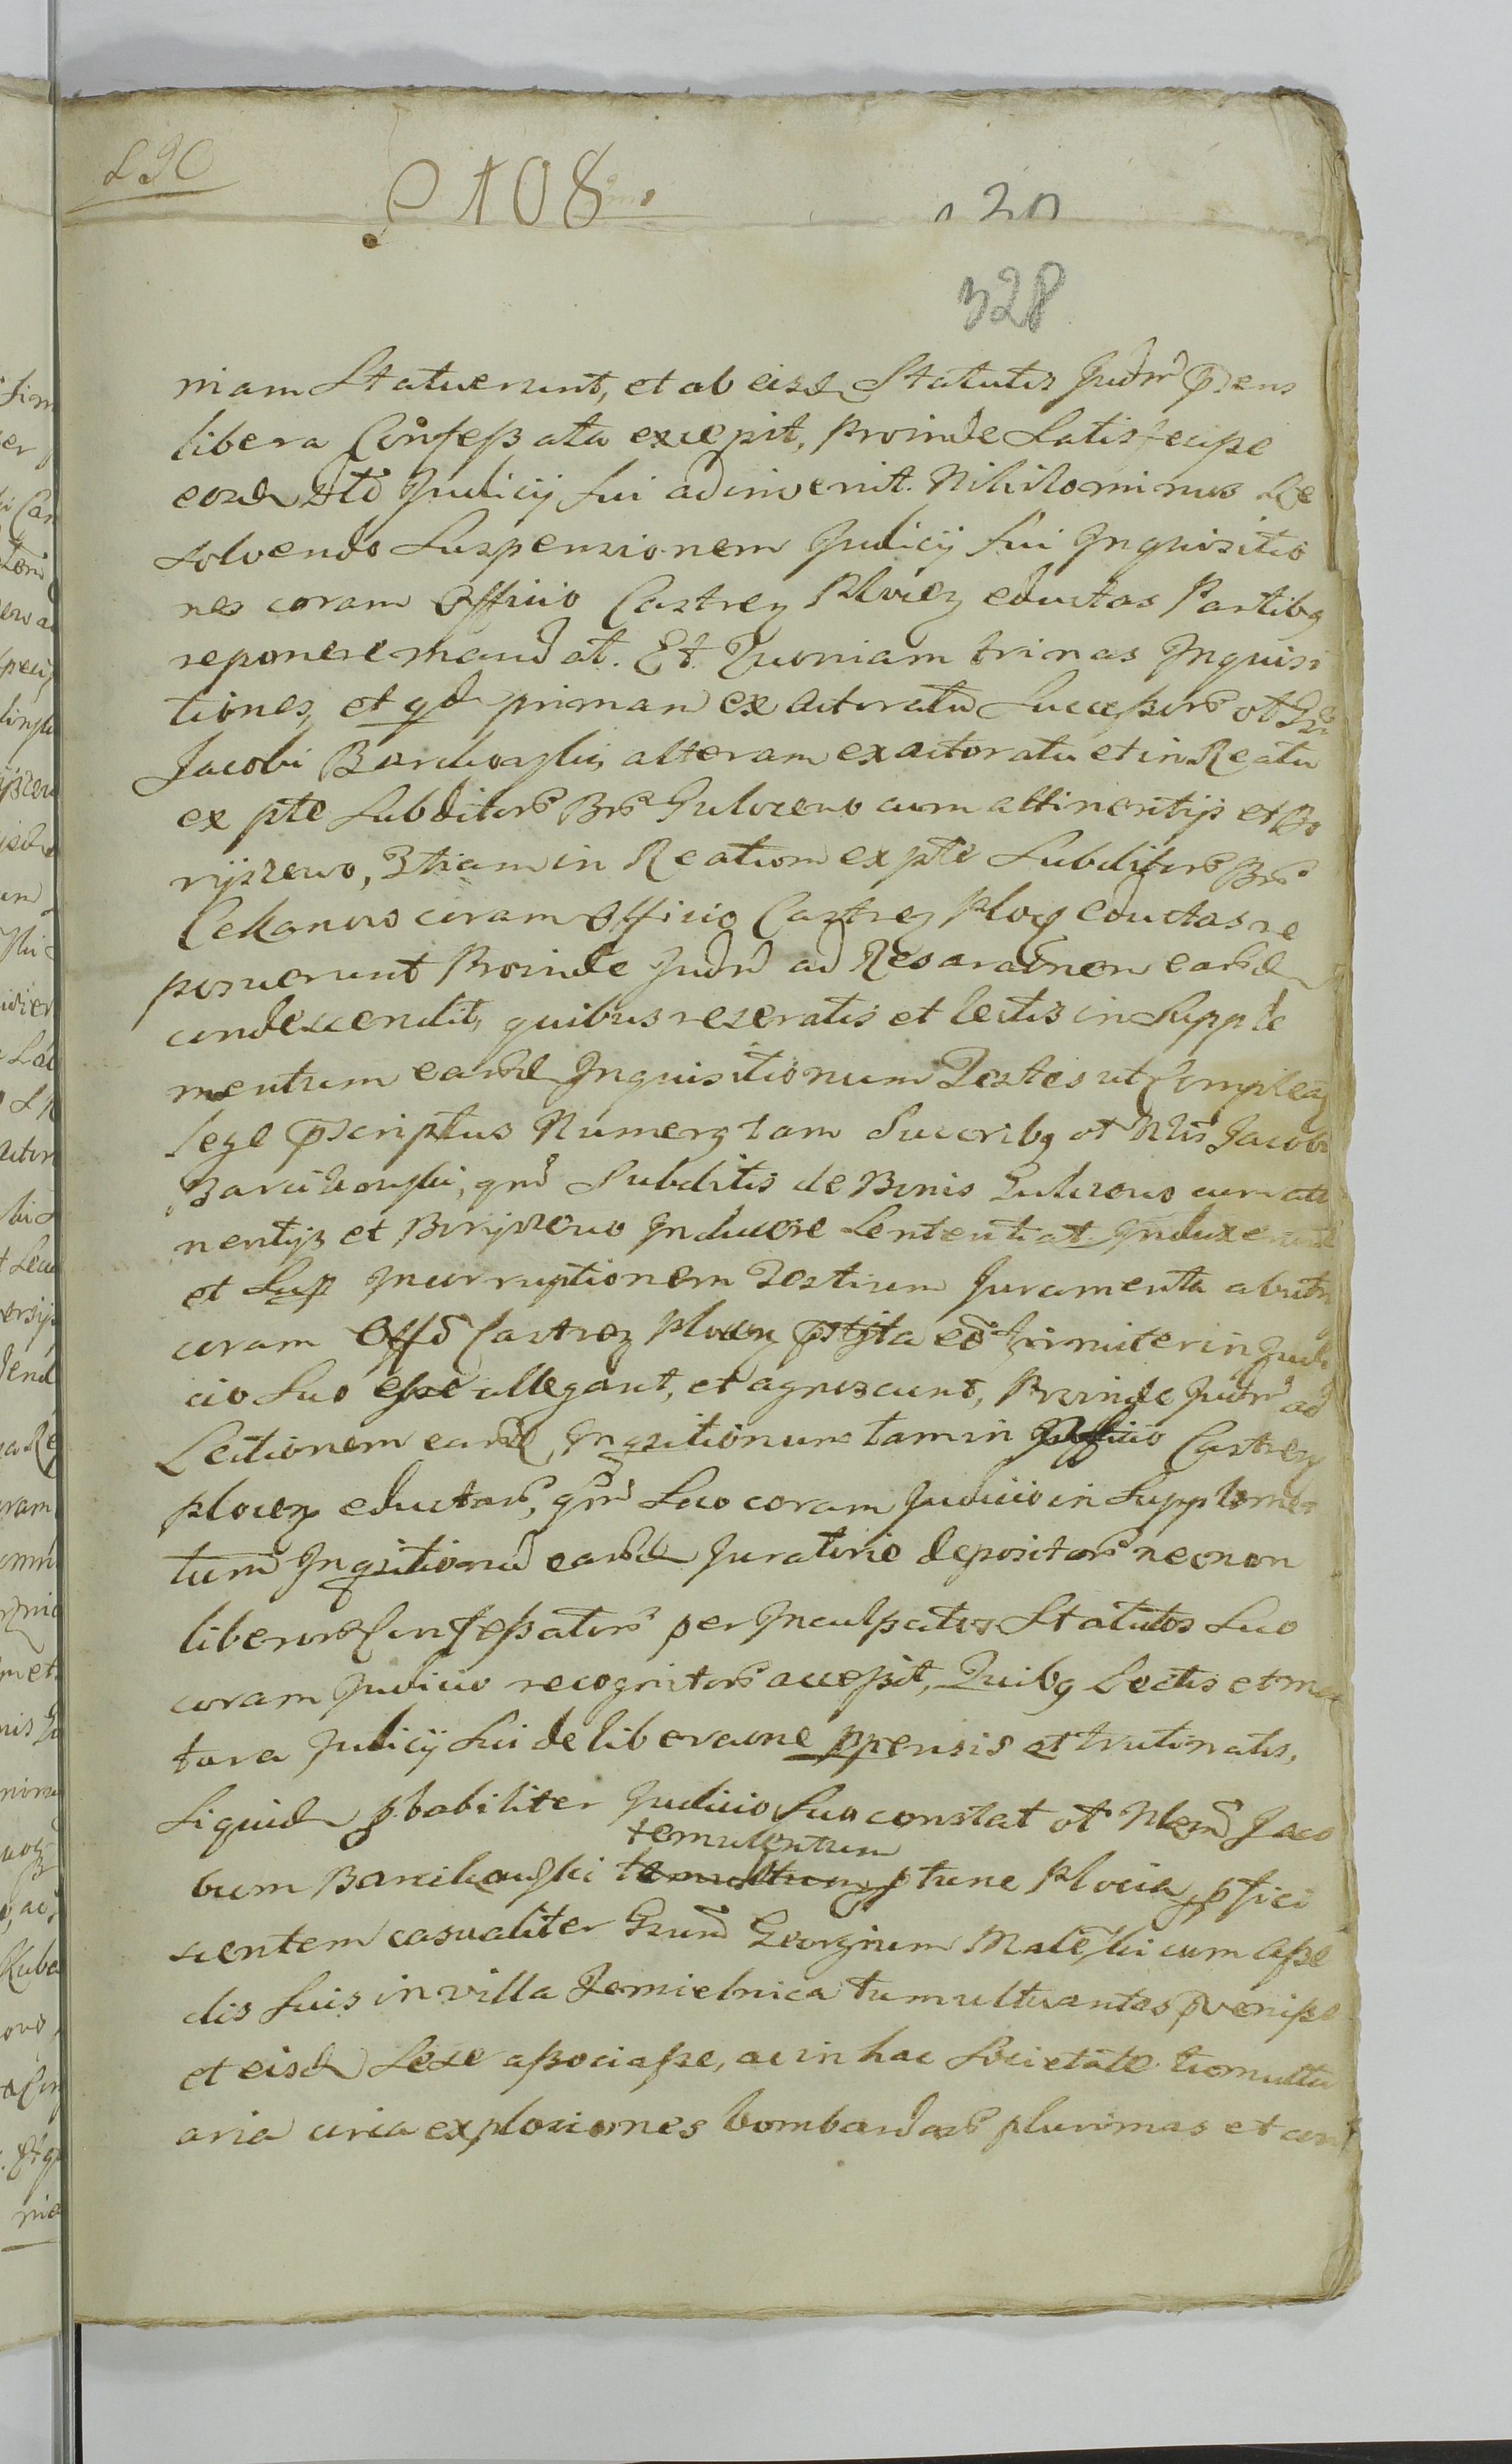 108
328
niam Statuerunt, et ab eisd Statutis Judm pñs
libera Confessata excepit, proinde Satisfecisse
eosd Judicij sui adinvenit. Nihilominus Re
solvendo Suspensionem Judicij sui Inquisitio
nes coram Officio Castren Plocen eductas Partibq
reponere mandat. Et Quoniam trinas Inquisi
tiones, et qd primam ex Actoratu Successorũ ot
Jacobi Barcikowski, alteram ex actoratu et in Reatu
ex pte Subditorũ Bnrũ Gulczewo cum attinentijs et Bo
ryszewo, 3tiam in Reatum ex pte Subditorũ Bnrũ
Cekanowo coram Officio Castren Ploc eductas re
posuerunt Proinde Judm ad Reserãonem earũd
condescendit, quibus reseratis et lectis in Supple
mentum earũd Inquisitionum Testes ut Complea
lege pscriptus Numerq tam Succoribq ot Nlis Jacobi
Barcikowski, qm Subditis de Bonis Gulczewo cum atti
nentijs et Boryszewo Inducere Sententiat. Induxerunt
et Sup Incorruptionem Testium Juramenta
coram Offo Castren Plocen pstita eo firmiter in Judi
cio Suo esse allegant, et agnoscunt, Proinde Judm ad
Lectionem earũd Inqsitionum tam in Officio Castren
plocen eductarũ, qm Suo coram Judicio in Supplemen
tum Inqsitionũ earũd Juratorie depositarũ necnon
liberorũ Confessatorũ per Inculpatos Statutos Suo
coram Judicio recognitorũ accessit, Quibq Lectis et ma
tura Judicij Sui deliberaone ppensis et trutinatis,
Liquid pbabiliter Judicio Suo constat ot Nlem Jaco
temulentum
bum Barcikowski temultum ptunc Plocia pfici
scentem casualiter Gnum Georgium cum Asse
clis Suis in villa Jemielnica tumultuantes pvenisse
et eisd Sese associasse, ac in hac Societate tumultu
aria circa explosiones bombardarũ plurimas et con